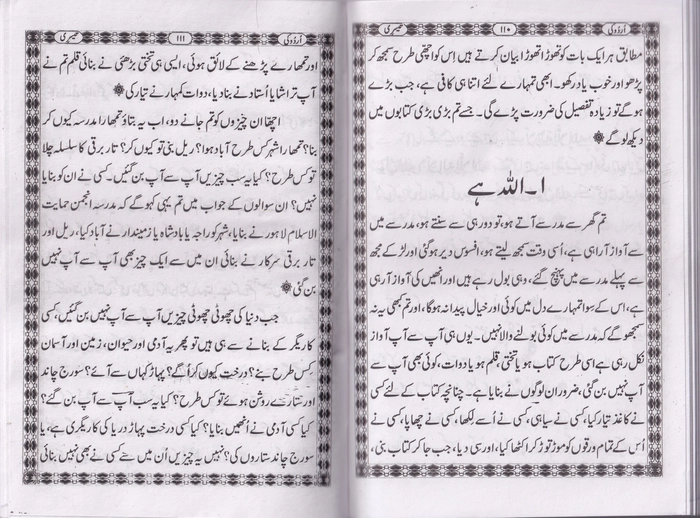 اُردُو کی
۱۱۰
تیسری
مطابق ہر ایک بات کو تھوڑا تھوڑا بیان کرتے ہیں اس کو اچھی طرح سمجھ کر
پڑھو اور خوب یاد رکھو۔ ابھی تمہارے لئے اتنا ہی کافی ہے، جب بڑے
ہو گے تو زیادہ تفصیل کی ضرورت پڑے گی۔ جسے تم بڑی بڑی کتابوں میں
دیکھ لو گے
۱۔ اللہ ہے
تم گھر سے مدرسے آتے ہو، تو دور ہی سے سنتے ہو، مدرسے میں
سے آواز آ رہی ہے، اُسی وقت سمجھ لیتے ہو، افسوس دیر ہو گئی اور لڑکے مجھ
سے پہلے مدرسے میں پہنچ گئے، وہی بول رہے ہیں اور انھیں کی آواز آ رہی
ہے، اس کے سوا تمہارے دل میں کوئی اور خیال پیدا نہ ہوگا، اور تم کبھی یہ نہ
سمجھو گے کہ مدرسے میں کوئی بولنے والا نہیں۔ یوں ہی آپ سے آپ آواز
نکل رہی ہے اسی طرح کتاب ہو یا تختی، قلم ہو یا دوات، کوئی بھی آپ سے
آپ نہیں بن گئی، ضرور ان لوگوں نے بنایا ہے۔ چنانچہ کتاب کے لئے کسی
نے کاغذ تیار کیا، کسی نے سیاہی، کسی نے اُسے لکھا، کسی نے چھاپا، کسی نے
اُس کے تمام ورقوں کو موڑ توڑ کر اکٹھا کیا، اور سی دیا، جب جا کر کتاب بنی،
اُردُو کی
۱۱۱
تیسری
اور تمہارے پڑھنے کے لائق ہوئی، ایسی ہی تختی بڑھئی نے بنائی قلم تم نے
آپ تراشا یا اُستاد نے بنا دیا، دوات کمہار نے تیار کی
اچھا ان چیزوں کو تم جانے دو، اب یہ بتاؤ تمھارا مدرسہ کیوں کر
بنا؟ تمھارا شہر کس طرح آباد ہوا؟ ریل بنی تو کیوں کر؟ تار برقی کا سلسلہ چلا
تو کس طرح؟ کیا یہ سب چیزیں آپ سے آپ بن گئیں۔ کسی نے ان کو بنایا
نہیں؟ ان سوالوں کے جواب میں تم یہی کہو گے کہ مدرسہ انجمن حمایت
الاسلام لاہور نے بنایا، شہر کو راجہ یا بادشاہ یا زمیندار نے آباد کیا، ریل اور
تار برقی سرکار نے بنائی ان میں سے ایک چیز بھی آپ سے آپ نہیں
بن گئی
جب دنیا کی چھوٹی چھوٹی چیزیں آپ سے آپ نہیں بن گئیں، کسی
کاریگر کے بنانے سے بنی ہیں تو پھر یہ آدمی اور حیوان، زمین اور آسمان
کس طرح بنے؟ درخت کیوں کر اُگے؟ پہاڑ کہاں سے آئے؟ سورج چاند
اور ستارے روشن ہوئے تو کس طرح؟ کیا یہ سب آپ سے آپ بن گئے؟
کیا کسی آدمی نے اُنھیں بنایا؟ کیا کسی درخت پہاڑ دریا کی کاریگری ہے، یا
سورج چاند ستاروں کی؟ نہیں یہ چیزیں اُن میں سے کسی نے بھی نہیں بنائی